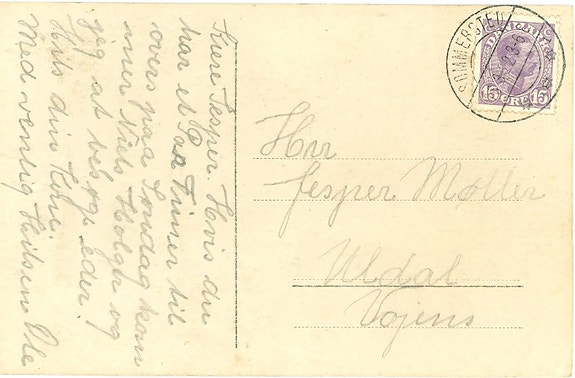 Kære Jesper. Hvis du
har et Par Timer til
overs paa Søndag kom
mer Niels Holger og
jeg at besøge eder
Hils din Kone.
Med venlig Hilsen Ole
SOMMERSTED
DANMARK
15 ØRE 15
Hrr
Jesper Møller
Uldal
Vojens